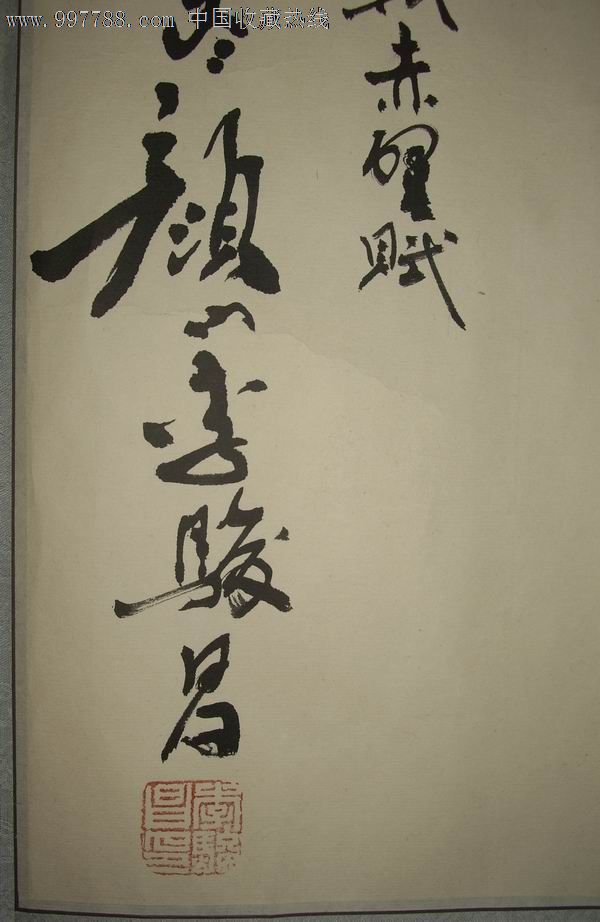 www.997788.com 中国收藏热线
赤壁赋
颜山李骏昌